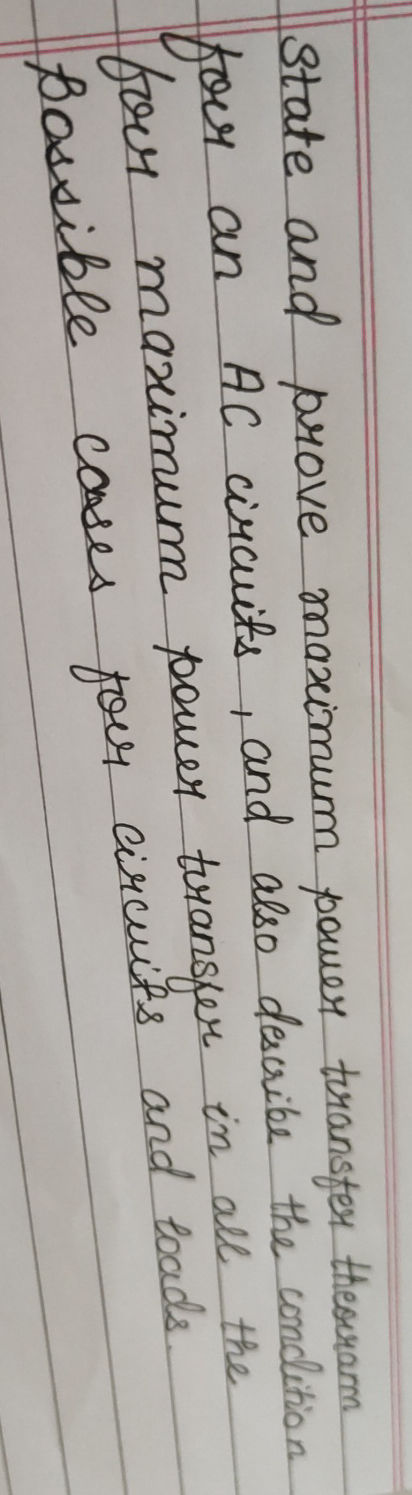 State and prove maximum power transfer theoram
for an AC circuits, and also describe the condition
for maximum power transfer in all the
Possible cases for circuits and loads.